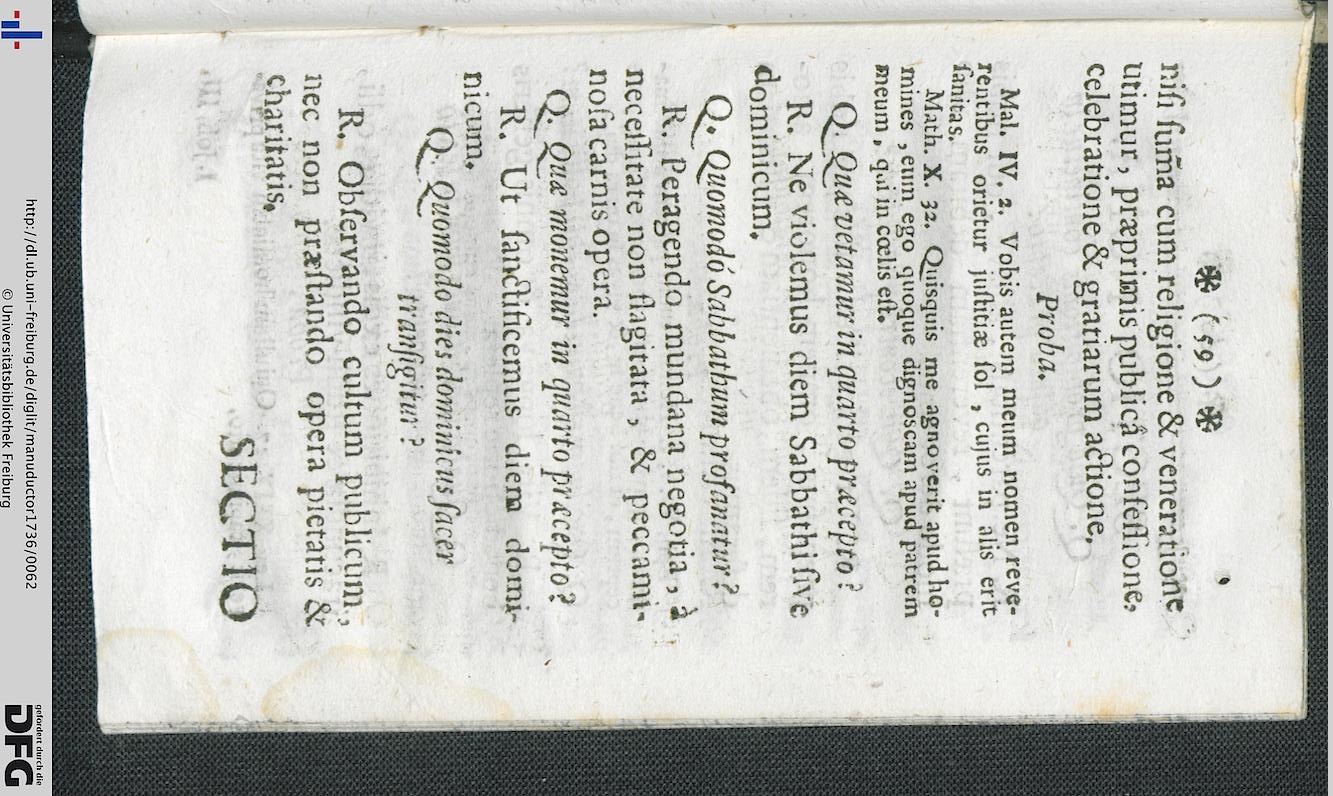 ✽ (59) ✽
niſi ſum̃a cum religione & veneratione
utimur, præprimis publicâ confeſſione,
celebratione & gratiarum actione.
Proba.
Mal. IV. 2. Vobis autem meum nomen reve-
rentibus orietur juſtitiæ ſol, cujus in alis erit
ſanitas.
Math. X. 32. Quisquis me agnoverit apud ho-
mines, eum ego quoque dignoscam apud patrem
meum, qui in cœlis eſt.
Q. Quæ vetamur in quarto præcepto?
R. Ne violemus diem Sabbathi ſive
dominicum.
Q. Quomodó Sabbathum profanatur?
R. Peragendo mundana negotia, à
neceſſitate non flagitata, & peccami-
noſa carnis opera.
Q. Quæ monemur in quarto præcepto?
R. Ut ſanctificemus diem domi-
nicum.
Q. Quomodo dies dominicus ſacer
tranſigitur?
R. Obſervando cultum publicum,
nec non præſtando opera pietatis &
charitatis.
SECTIO
http://dl.ub.uni-freiburg.de/diglit/manuductor1736/0062
© Universitätsbibliothek Freiburg
gefördert durch die
DFG